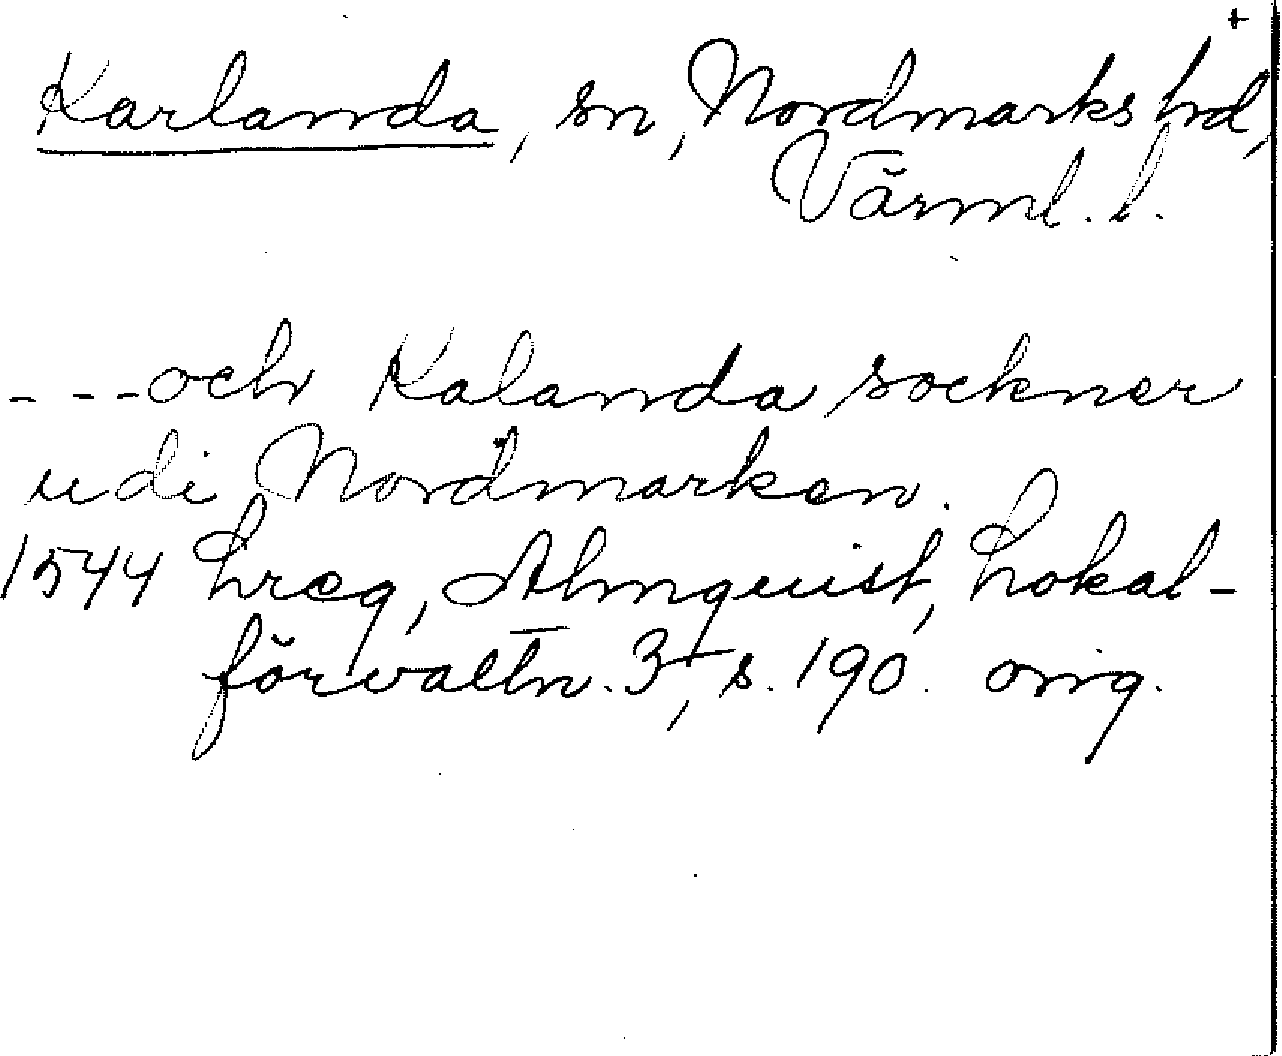 +
Karlanda, sn, Nordmarks hd,
Värml. l.
---och Kalanda sockner
udi Nordmarken.
1544 Lreg, Almquist, Lokal-
förvaltn. 3, s. 190. orig.